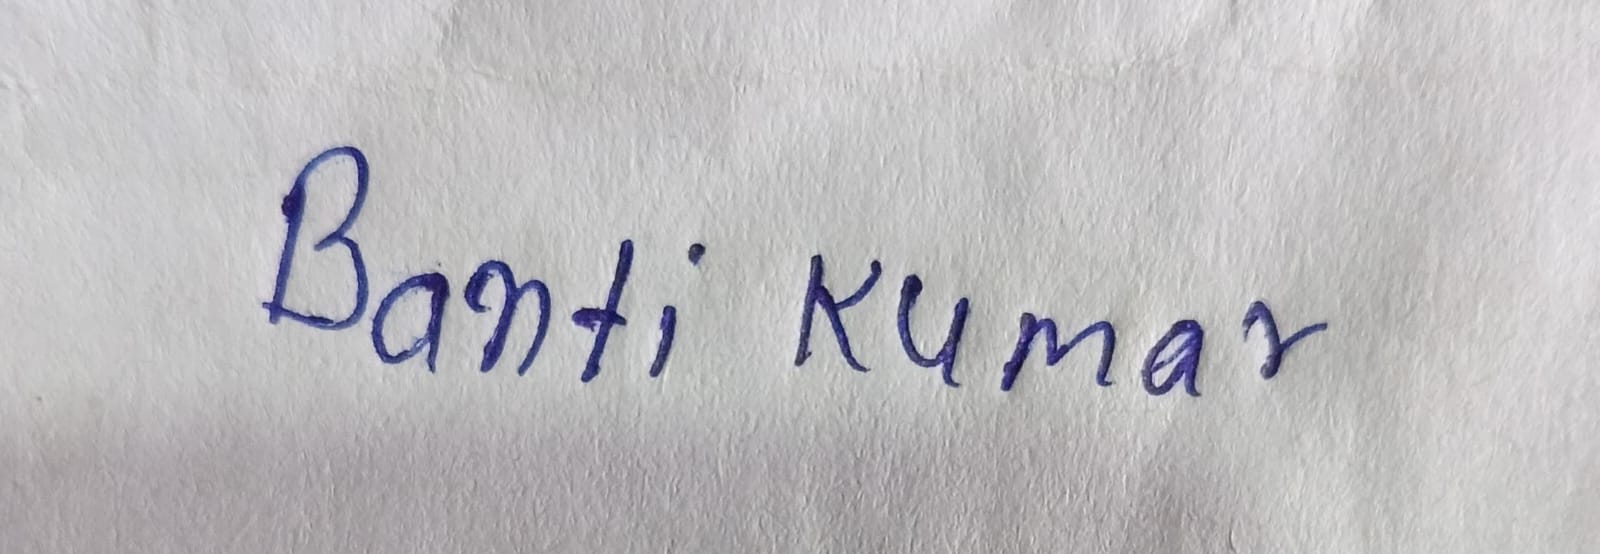 Banti Kumar